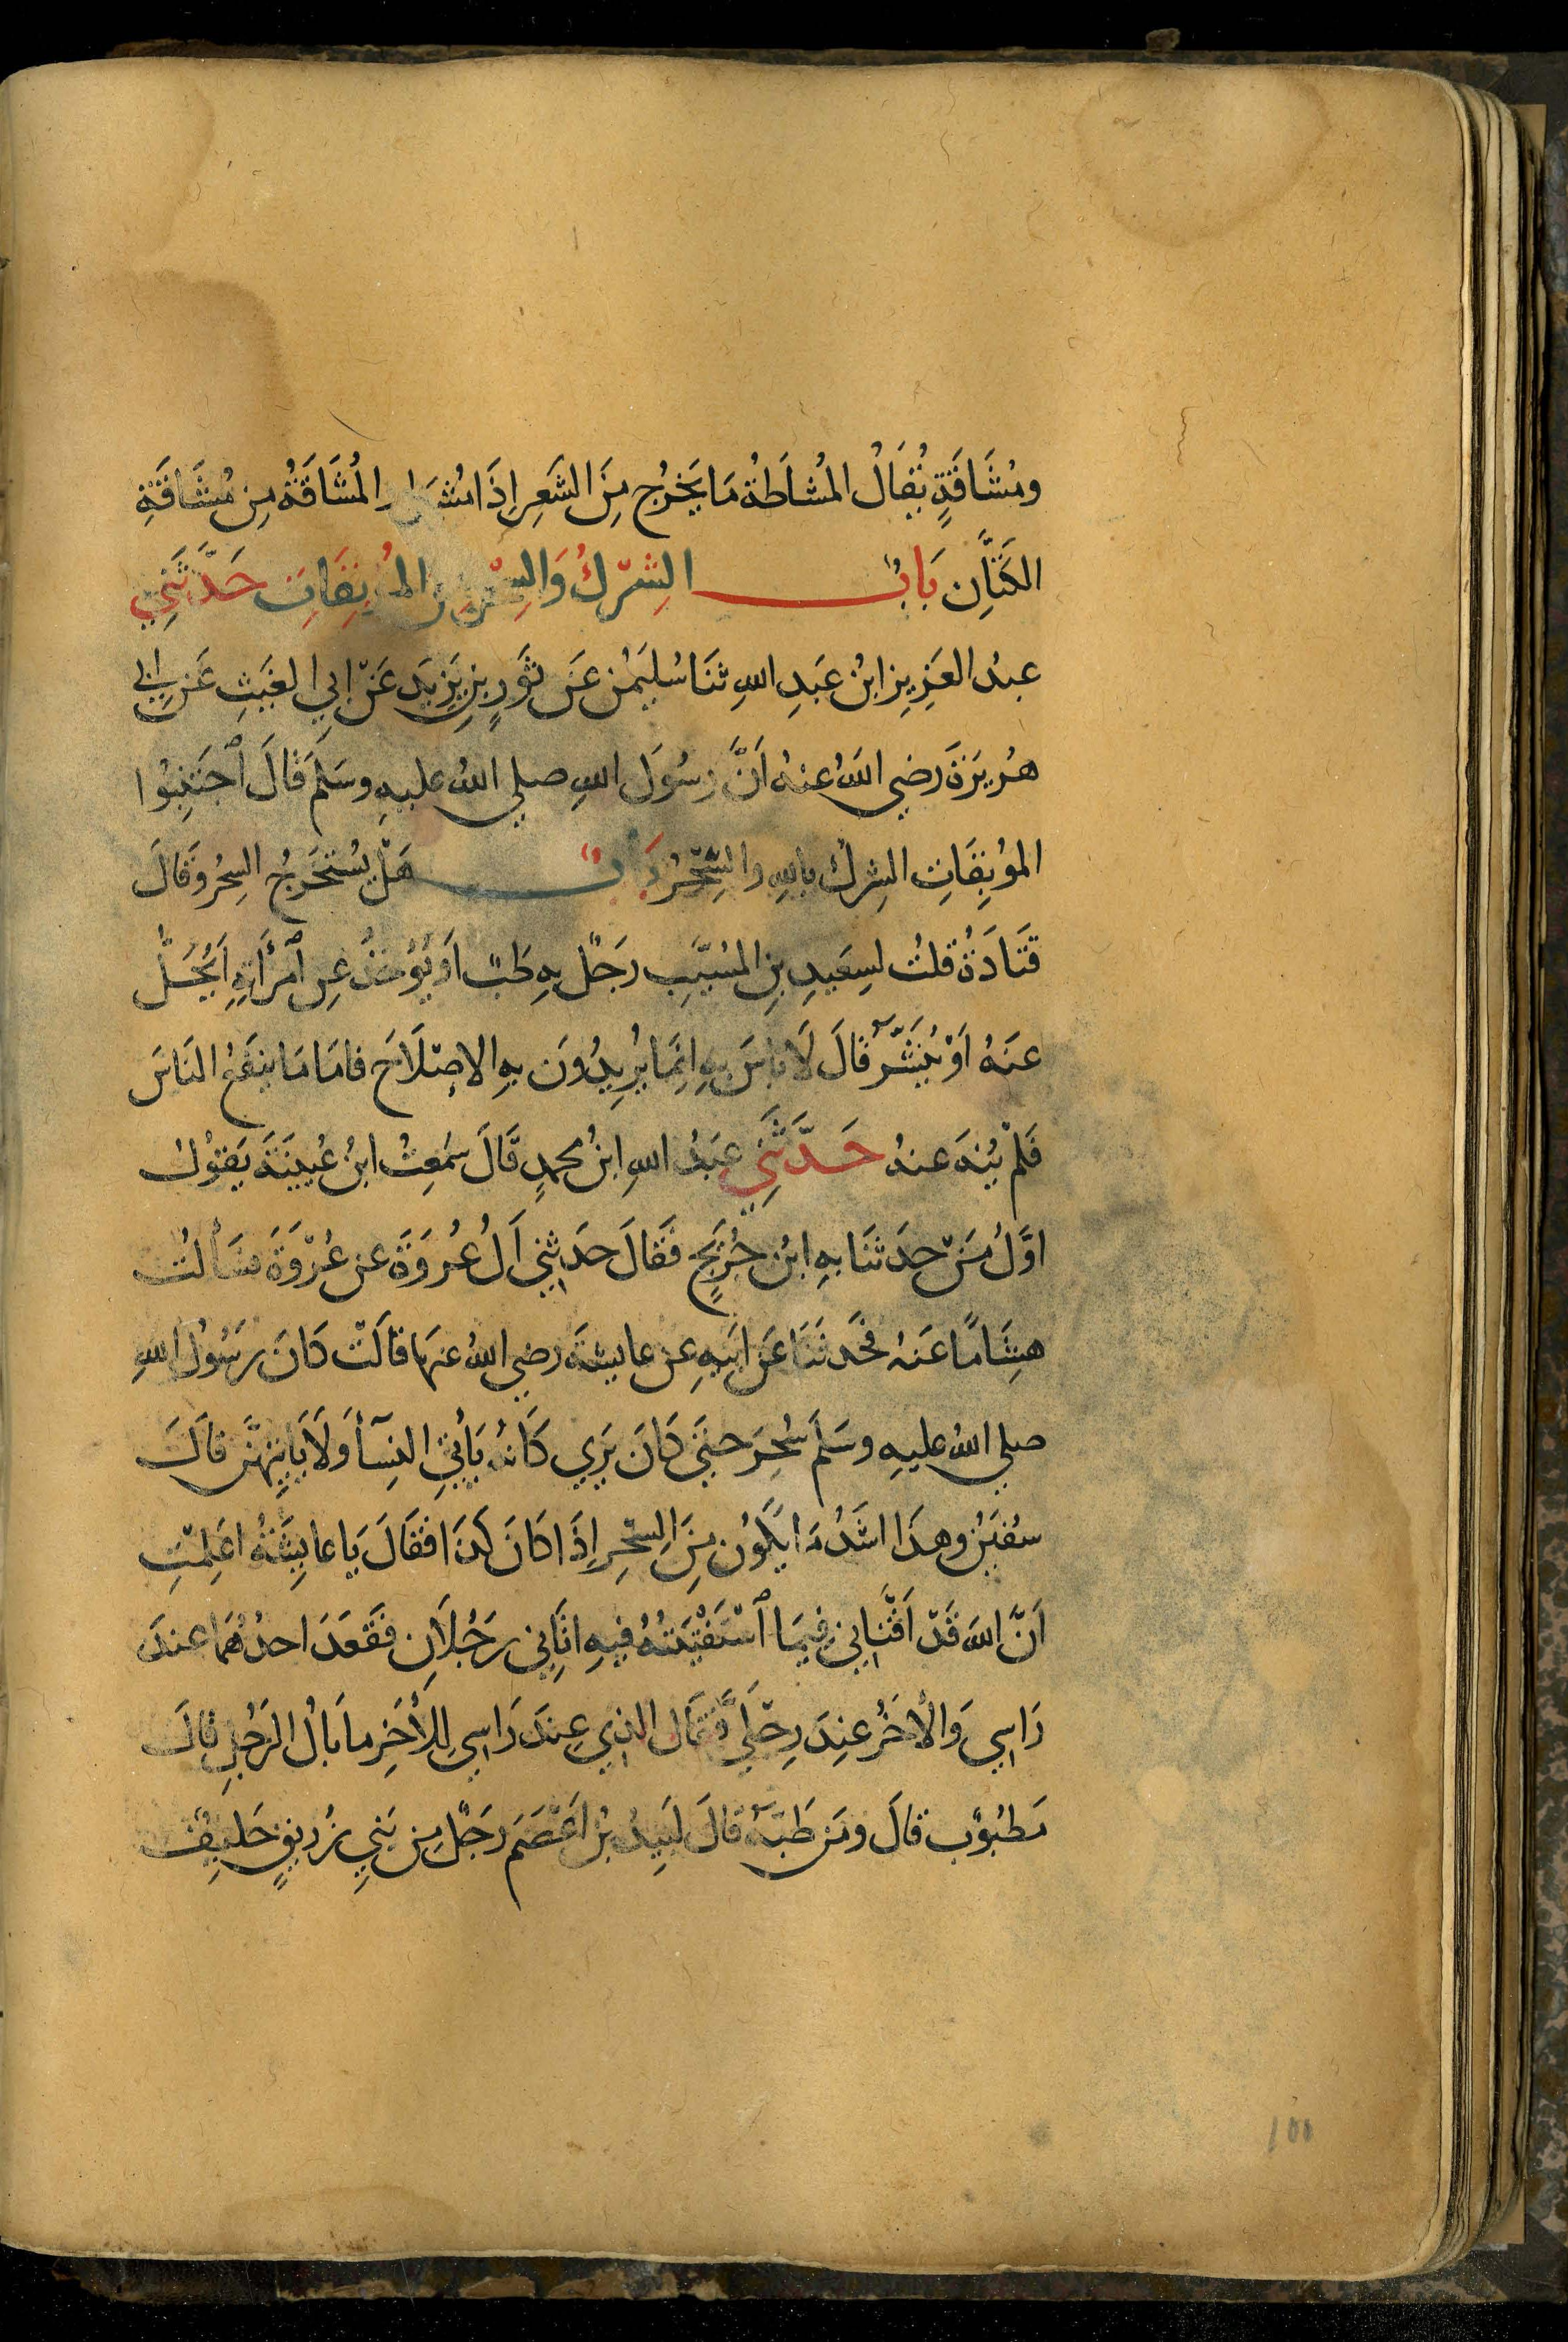 ومُشَاقَةٍ يُقَالُ المُشَاطَةُ مَا يَخْرُج مِنَ الشَعِر اِذَا مُشِطَ والمُشَّاقَةُ مِن مُشَاقَةِ
الكَتَّانِ بَابُ الشِرْكُ وَالسِحْرُ مِن المُوبِقَاتِ حَدَّثَنِي
عبدُ العَزِيزِ ابنُ عَبدِ اللهِ ثنَا سُليَمٰنُ عَن ثَورِ بنِ يَزِيَد عَنْ ابِي الغَيثِ عَن ابي
هُريرَةَ رَضي اللهُ عنهُ اَنَّ رسُولَ اللهِ صلي اللهُ عليهِ وسَلَم قَالَ ٱجتَنِبُوا
الموُبِقَاتِ الشِركُ باللهِ والسِّحْرُ بَابُ هَلْ يُستَخرجُ السِحرُ وقَالَ
قتَادَةُ قلتُ لسِعَيدِ بنِ المسُيَّبِ رَجُلٌ بهِ طَبٌ اَو يُؤخذُ عنِ ٱمرأَتِهِ اَيُحَلُّ
عنَهُ اَوْ يُنَشَّرُ قَالَ لَا باسَ بهِ اِنمَّا يُرِيدُونَ بهِ الاِصْلَاحَ فامَا مَا ينفَعُ النَاسَ
فَلمْ يُنهَ عنهُ حَدَّثَنِي عبَدُ اللهِ ابنُ محمدٍ قَالَ سَمعِتُ ابنُ عُيينَةَ يَقوُلُ
اوَّلُ مَنْ حدَثنَا بهِ ابنُ جُرَيجٍ فَقَالَ حدَثنِي اَلُ عُروَةَ عن عُرْوَةَ فسَألتُ
هِشَامًا عَنهُ فَحدَثَنَا عَن ابَيهِ عن عايشةَ رضي اللهُ عنَها قالَتْ كَانَ رَسُولُ اللهِ
صلي اللهُ عليهِ وسَلَم سُحِرَ حتىَ كَانَ يَرَي كَانهُ يَأتِي النِسَآ وَلَا يَاتِيهنَّ قالَ
سفيٰنُ وهذَا اشَدُ مَا يكَوُن مِنَ السِحْرِ اِذَا كَانَ كَذَا فقَالَ يَا عايِشَةُ اعَلِمْتِ
اَنَّ اللهَ قَدْ اَفْتَانِي فِيمَا ٱسْتَفْتَيتُهُ فيهِ اتَاِني رَجُلَانِ فقَعَدَ احدُهُمَا عندَ
رَاسِي وَالأخَرُ عنِدَ رِجْلَيَّ فقَال الذِي عِندَ رَاسِي لِلأخَرِ ما بَالُ الرَجُلِ قالَ
مَطبُوبٌ قالَ ومَن طَبَّهُ قالَ لَبيدُ بنُ اَعْصَم رَجلٌ مِن بَنِي زُريقٍ حَليفٌ
100